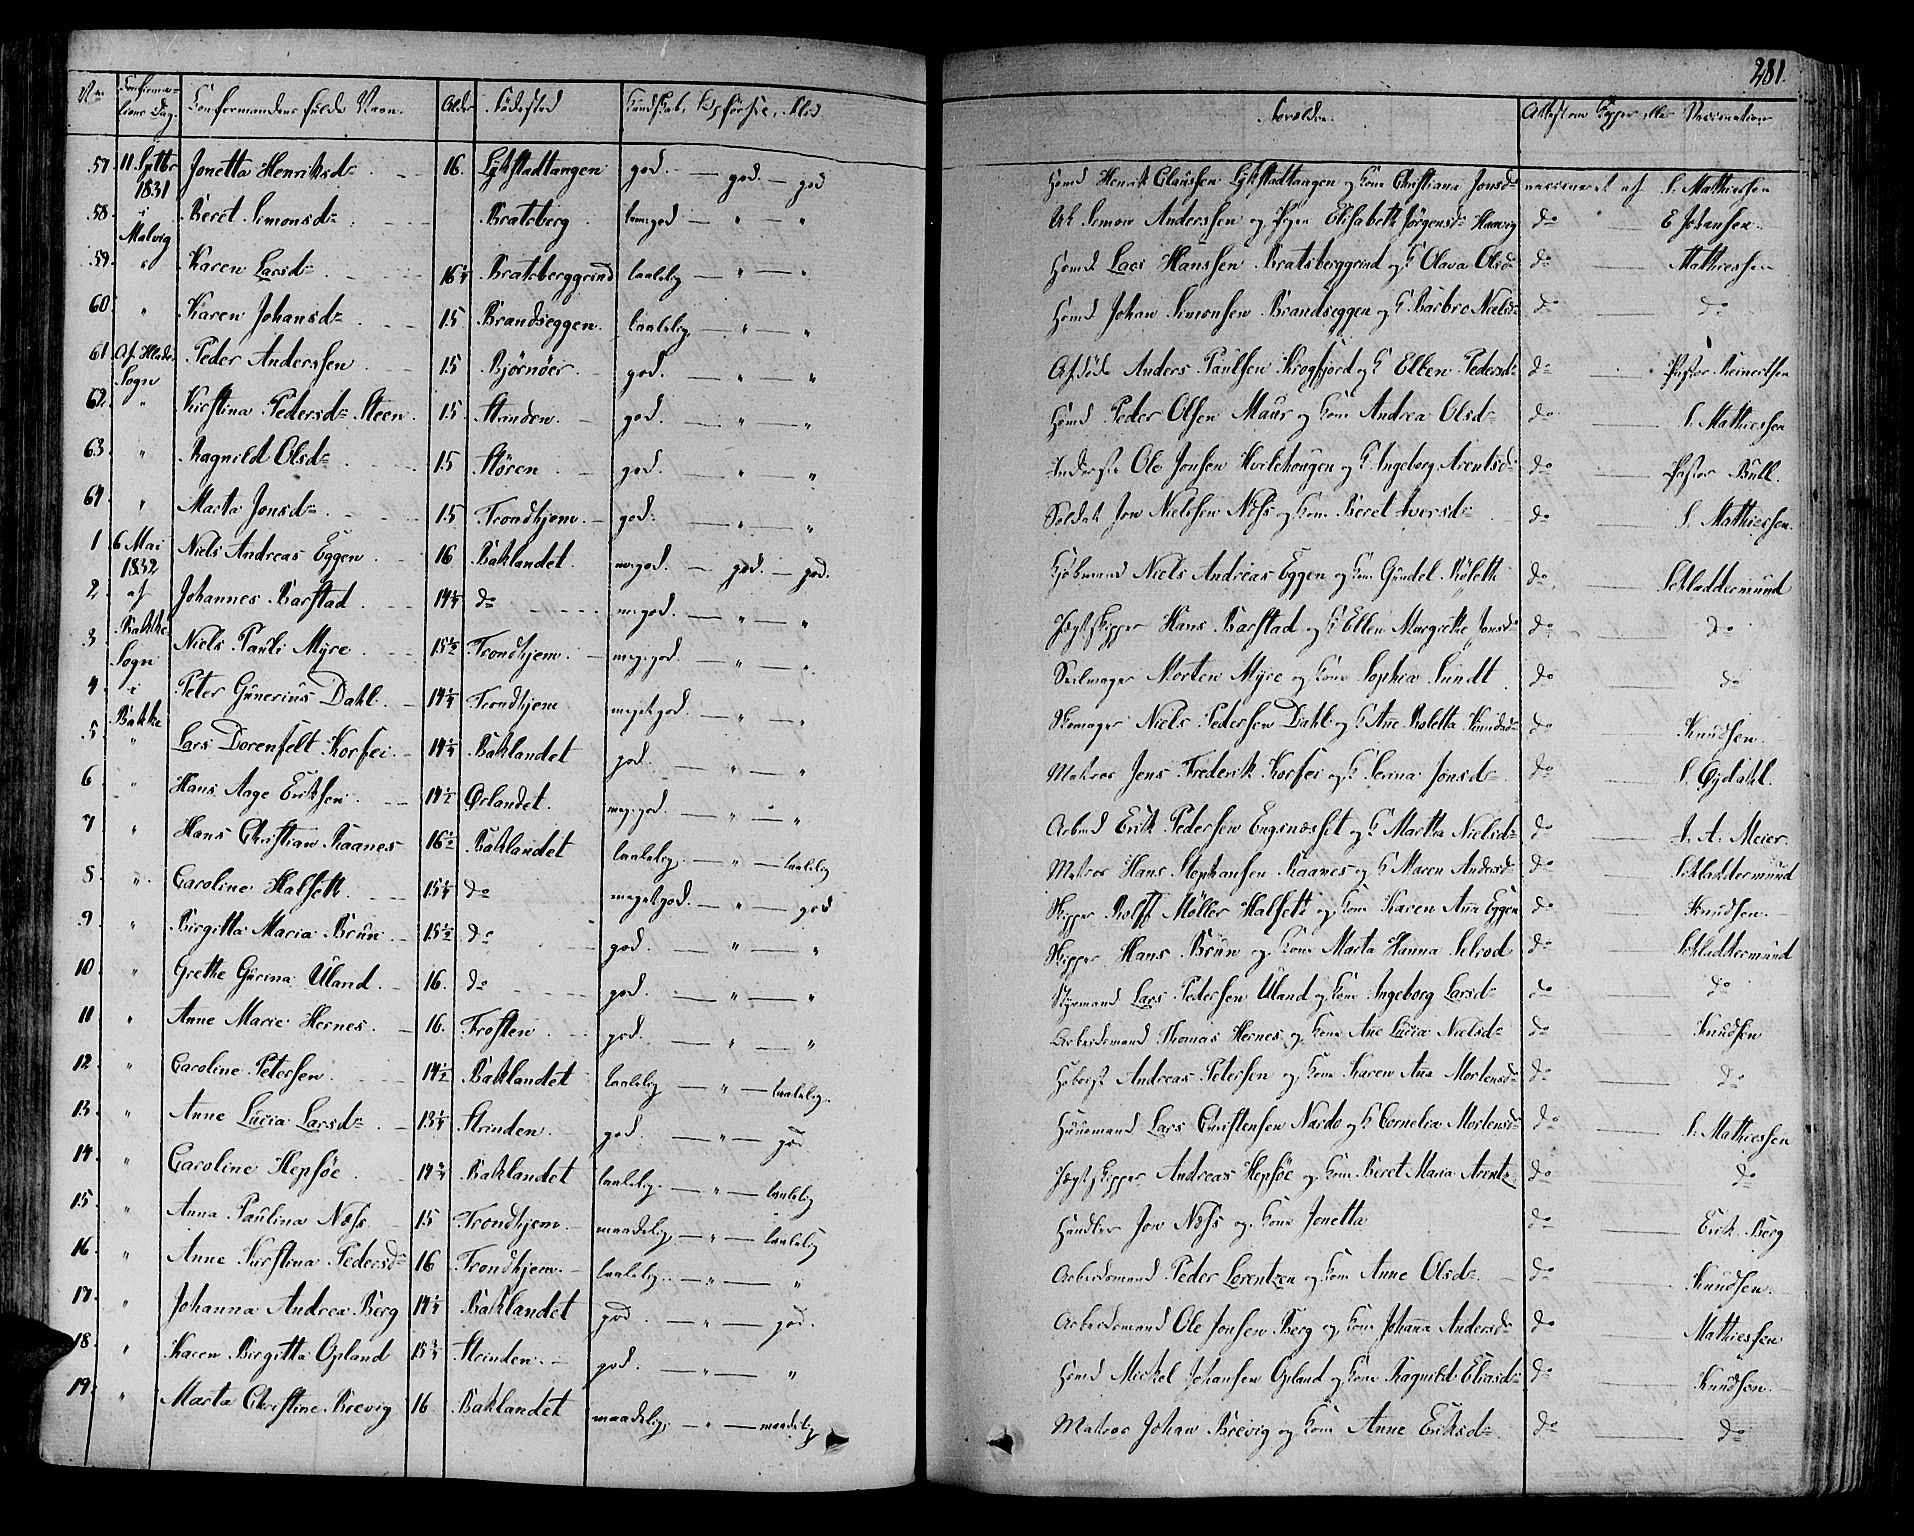 281.
No. Confirmations Dag. Confirmandens fulde Navn. Alder Fødested Kundskab, Opførsel, Flid Forældre. Attest om Kopper eller Vaccination
57. 11 Septbr 1831 Jonetta Henriksd. 16. Lykstadtangen god. — god. — god Hsmd Henrik Clausen Lykstadtangen og Kone Christiana Jonsd. vaccineret af S. Mathiessen
58. i Malvig Beret Simonsd. Bratsberg — " — " Simon Anderssen og Pigen Elisabeth Jørgensd. do — E Johansen.
59. " Karen Larsd. 16¼ Bratsberggrind taalelig — " — " Hsmd Lars Hanssen Bratsberggrind og K Olava Olsd. do — Mathiessen
60. " Karen Johansd. 15 Brandseggen. taalelig. — " — " Hsmd Johan Simonsen Brandseggen og K Barbro Nielsd. do — do
61. Af Hlade Sogn Peder Anderssen 15 Bjørnöer god. — " — " Afdöde Anders Paulsen Krogfjord og K Ellen Pedersd. do Pastor Heinertsen
62. " Kirstina Pedersd. Steen. 15 god. — " — " Hsmd Peder Olsen Maur og Kone Andrea Olsd. do S. Mathiessen
63. " Ragnild Olsd. 15 Stören god. — " — " Ole Jonsen og K Ingeborg Arentsd. do — Pastor Bull.
64. " Marta Jonsd. 15 Trondhjem. god. — " — " Soldat Jon Nielssen Næss og Kone Beret Iversd. do — S. Mathiessen.
1. 6 Mai 1832 Niels Andreas Eggen. 16 Baklandet. meg. god. — god. — god. Kjøbmand Niels Andreas Eggen og Kone Gundel Roleth do — Schladdermund
2. af Johannes Barstad. 14¾ do m. god. — " — " Jægtskipper Hans Barstad og K Ellen Margrethe Jonsd. do — do
3. Bakke Sogn Niels Pauli Myre 15½ Trondhjem. meg. god. — " — " Seilmager Morten Myre og Kone Sophia Sundt do — do
4. i Peter Gunerius Dahl. 14¼ Trondhjem meget god. — " — " Skomager Niels Pedersen Dahl og K Ane Roletta Knudsd. do — Knudsen.
5. Bakke " Lars Dorenfelt Korfei. 14¼ Baklandet god. — " — " Matros Jens Frederik Korfei og K Serina Jonsd. do — S. Oydahl.
6 " Hans Aage Eriksen. 14½ Ørlandet. meg. god. — " — " Arbmd Erik Pedersen Engsnæsset og K Martha Nielsd. do — A. A. Meier.
7. " Hans Christian Raanes 16½ Baklandet taalelig. — " — taalelig Matros Hans Stephansen Raanes og K Maren Andersd. do — Schladdermund
8. " Caroline Halseth. 15¼ do meget god. — " — god Skipper Rolff Møller Halseth og Kone Karen Ana Eggen do — Knudsen.
9. " Birgitta Maria Brun 15½ do god. — " — " Skipper Hans Brun og Kone Marta Hanna Selrod do — Schladdermund
10. " Grethe Gurina Uland. 16. do god. — " — " Styrmand Lars Pedersen Uland og Kone Ingeborg Larsd. do — do
11 " Anne Marie Hernes. 16. Frosten. god. — " — " Arbeidsmand Thomas Hernes og Kone Ane Lucia Nielsd. do — Knudsen
12. " Caroline Petersen. 14½ Baklandet taalelig — " — taalelig. Andreas Petersen og Kone Karen Ana Mortensd. do — do
13. " Anne Lucia Larsd. 13¾ Strinden. god. — " — god Huusmand Lars Christensen Nardo og K Cornelia Mortensd. do — S. Mathiessen
14. " Caroline Hepsöe 14¾ Baklandet taalelig. — " — taalelig Jægtskipper Andreas Hepsöe og Kone Beret Maria Arentz. do — do
15. " Anna Paulina Næss. 15 Trondhjem. maadelig. — " — taalelig Handler Jon Næss og Kone Jonetta do — Erik Berg
16. " Anne Kirstina Pedersd. 16 Trondhjem. taalelig. — " — " Arbeidsmand Peder Lorentzen og Kone Anne Olsd. do — Knudsen.
17. " Johanna Andrea Berg 14¼ Baklandet god. — " — god. Arbeidsmand Ole Jonsen Berg og Kone Johana Andersd. do — Mathiessen
18. " Karen Birgitta Opland 15¾ Strinden. god. — " — " Hsmd Mickel Johansen Opland og Kone Ragnild Eliasd. do — Knudsen.
19. " Marta Christine Brevig 16. Baklandet maadelig. — " — maadelig Matros Johan Brevig og Kone Anne Eriksd. do — do